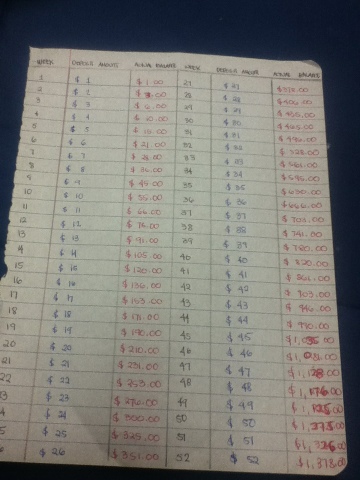 WEEK DEPOSIT AMOUNT ACTUAL BALANCE WEEK DEPOSIT AMOUNT ACTUAL BALANCE
1 $ 1 $ 1.00 27 $ 27 $ 378.00
2 $ 2 $ 3.00 28 $ 28 $ 406.00
3 $ 3 $ 6.00 29 $ 29 $ 435.00
4 $ 4 $ 10.00 30 $ 30 $ 465.00
5 $ 5 $ 15.00 31 $ 31 $ 496.00
6 $ 6 $ 21.00 32 $ 32 $ 528.00
7 $ 7 $ 28.00 33 $ 33 $ 561.00
8 $ 8 $ 36.00 34 $ 34 $ 595.00
9 $ 9 $ 45.00 35 $ 35 $ 630.00
10 $ 10 $ 55.00 36 $ 36 $ 666.00
11 $ 11 $ 66.00 37 $ 37 $ 703.00
12 $ 12 $ 78.00 38 $ 38 $ 741.00
13 $ 13 $ 91.00 39 $ 39 $ 780.00
14 $ 14 $ 105.00 40 $ 40 $ 820.00
15 $ 15 $ 120.00 41 $ 41 $ 861.00
16 $ 16 $ 136.00 42 $ 42 $ 903.00
17 $ 17 $ 153.00 43 $ 43 $ 946.00
18 $ 18 $ 171.00 44 $ 44 $ 990.00
19 $ 19 $ 190.00 45 $ 45
20 $ 20 $ 210.00 46 $ 46
21 $ 21 $ 231.00 47 $ 47 $ 1,128.00
22 $ 22 $ 253.00 48 $ 48 $ 1,176.00
3 $ 23 $ 276.00 49 $ 49
$ 24 $ 300.00 50 $ 50 $ 1,275.00
5 $ 25 $ 325.00 51 $ 51 $ 1,326.00
$ 26 $ 351.00 52 $ 52 $ 1,378.00